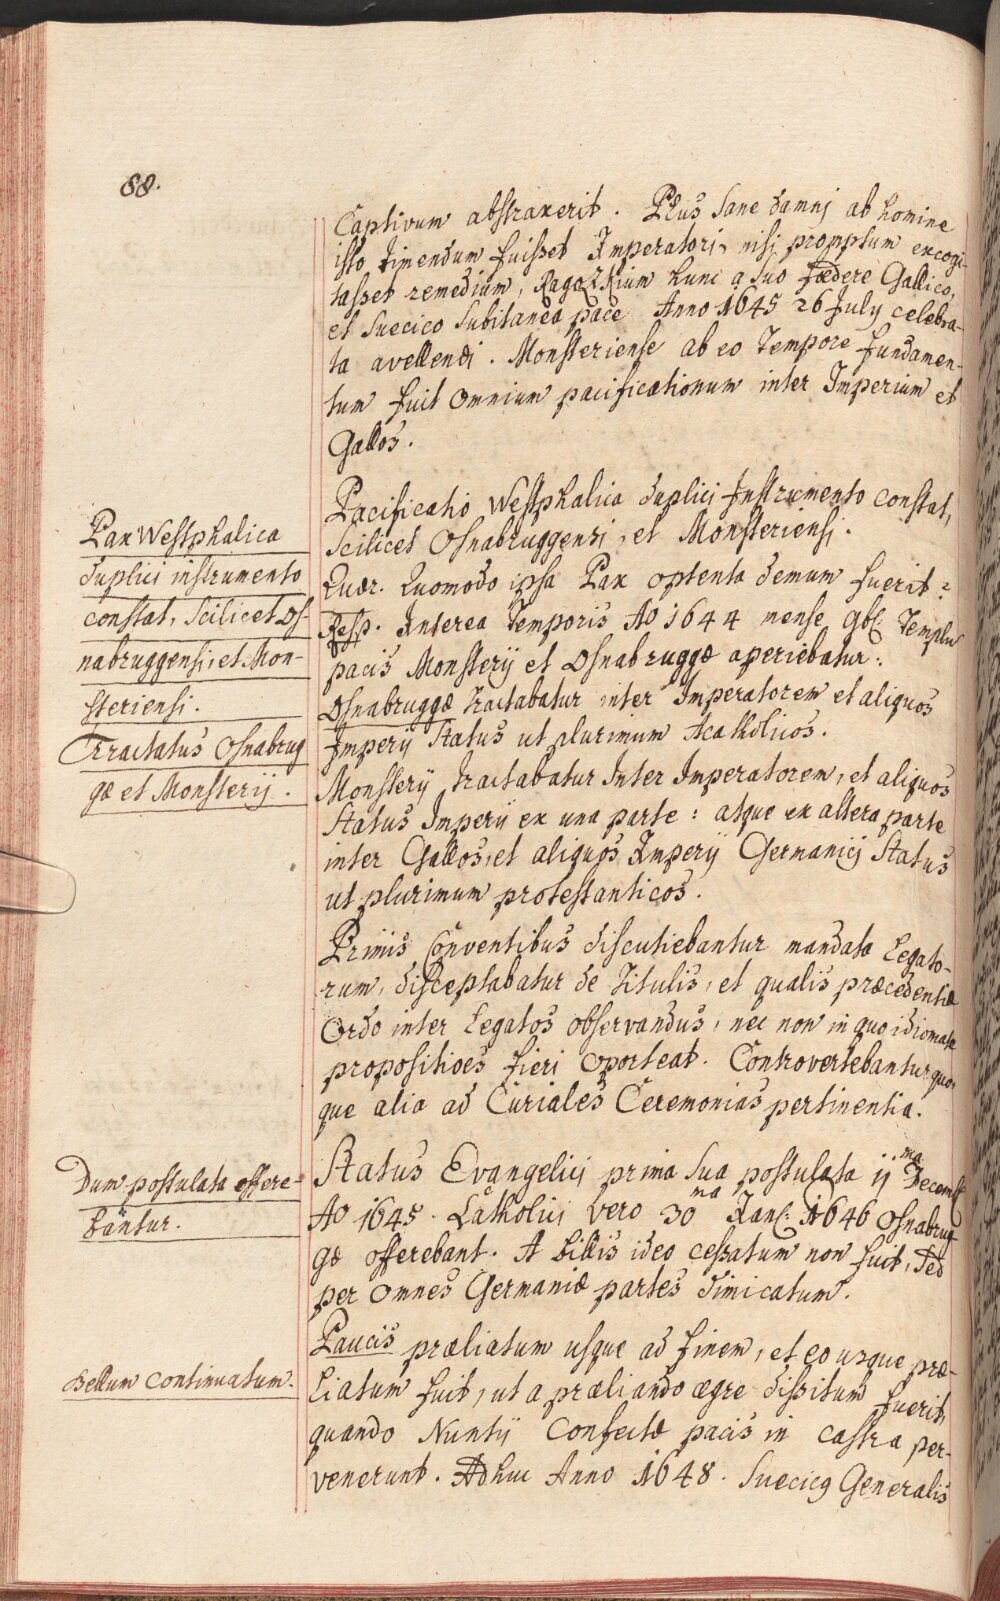 88.
Captivum abstraxerit. Plus sane damni ab homine
isto timendum fuisset Imperatori, nisi promptum excogi-
tasset remedium, Ragozkium hunc a suo fædere Gallico,
et Suecico subitanea pace Anno 1645 26 July celebra-
ta avellendi. Monsteriense ab eo tempore fundamen-
tum fuit omnium pacificationum inter Imperium et
Gallos.
Pax Westphalica
duplici instrumento
constat, scilicet Os-
nabruggensi, et Mon-
steriensi.
Tractatus Osnabrug
gæ et Monsterij.
Pacificatio Westphalica duplici Instrumento constat,
scilicet Osnabruggensi, et Monsteriensi.
Quær. Quomodo ipsa Pax optenta demum fuerit?
Resp. Interea Temporis Ao 1644 mense 9b[: Templū
pacis Monsterij et Osnabruggæ aperiebatur:
Osnabruggæ tractabatur inter Imperatorem et aliquos
Imperij Status ut plurimum Acatholicos.
Monsterij tractabatur Inter Imperatorem, et aliquos
Status Imperij ex una parte: atque ex altera parte
inter Gallos, et aliquos Imperij Germanici Status
ut plurimum protestanticos.
Primis Conventibus discutiebantur mandata Legato-
rum, disceptabatur de Titulis, et qualis præcedentiæ
Ordo inter Legatos observandus, nec non in quo idiomate
propositioēs fieri oporteat. Controvertebantur quo-
que alia ad Curiales Ceremonias pertinentia.
Dum postulata offere-
bantur.
Status Evangelici prima sua postulata 11ma Decemb
Ao 1645. Catholici vero 30ma Jan[: 1646 Osnabrug-
gæ offerebant. A bellis ideo cessatum non fuit, sed
per omnes Germaniæ partes dimicatum.
Bellum continuatum.
Paucis præliatum usque ad finem, et eo usque præ-
liatum fuit, ut a præliando ægre dissitum fuerit,
quando Nuntij Confectæ pacis in castra per-
venerunt. Adhuc Anno 1648. Suecicg Generalis